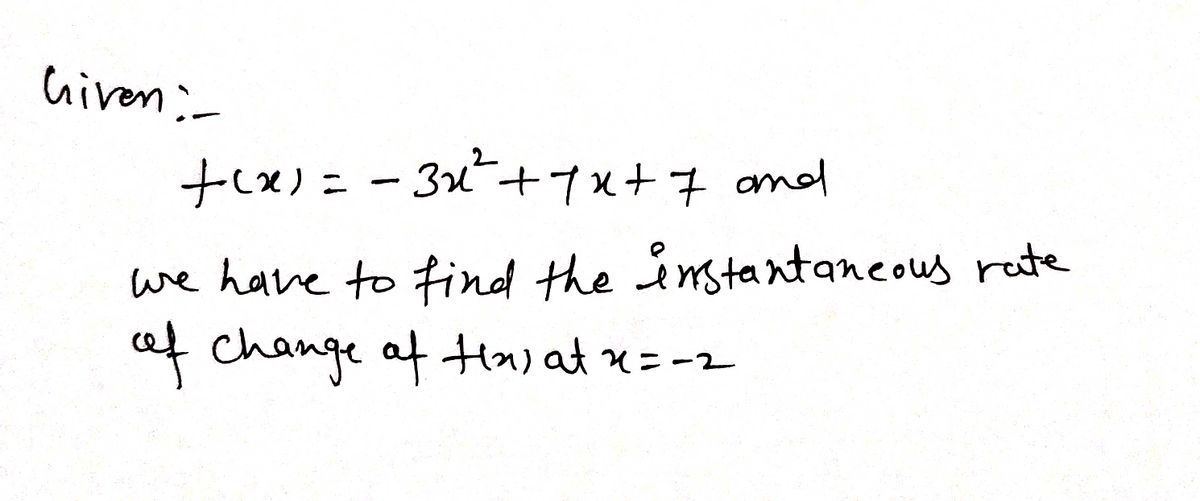 Given:-
f(x) = - 3x² + 7x + 7 and
we have to find the instantaneous rate
of change of f(x) at x = -2